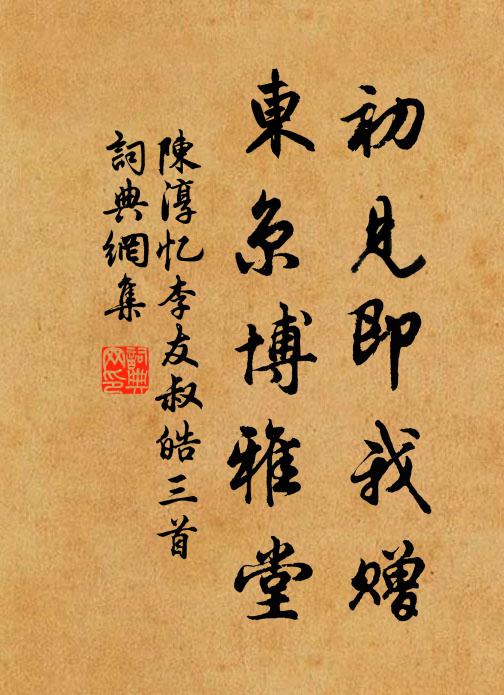 初見即我赠
東京博雅堂
陳淳忆李友叔皓三首
詞典網集
詞典網印